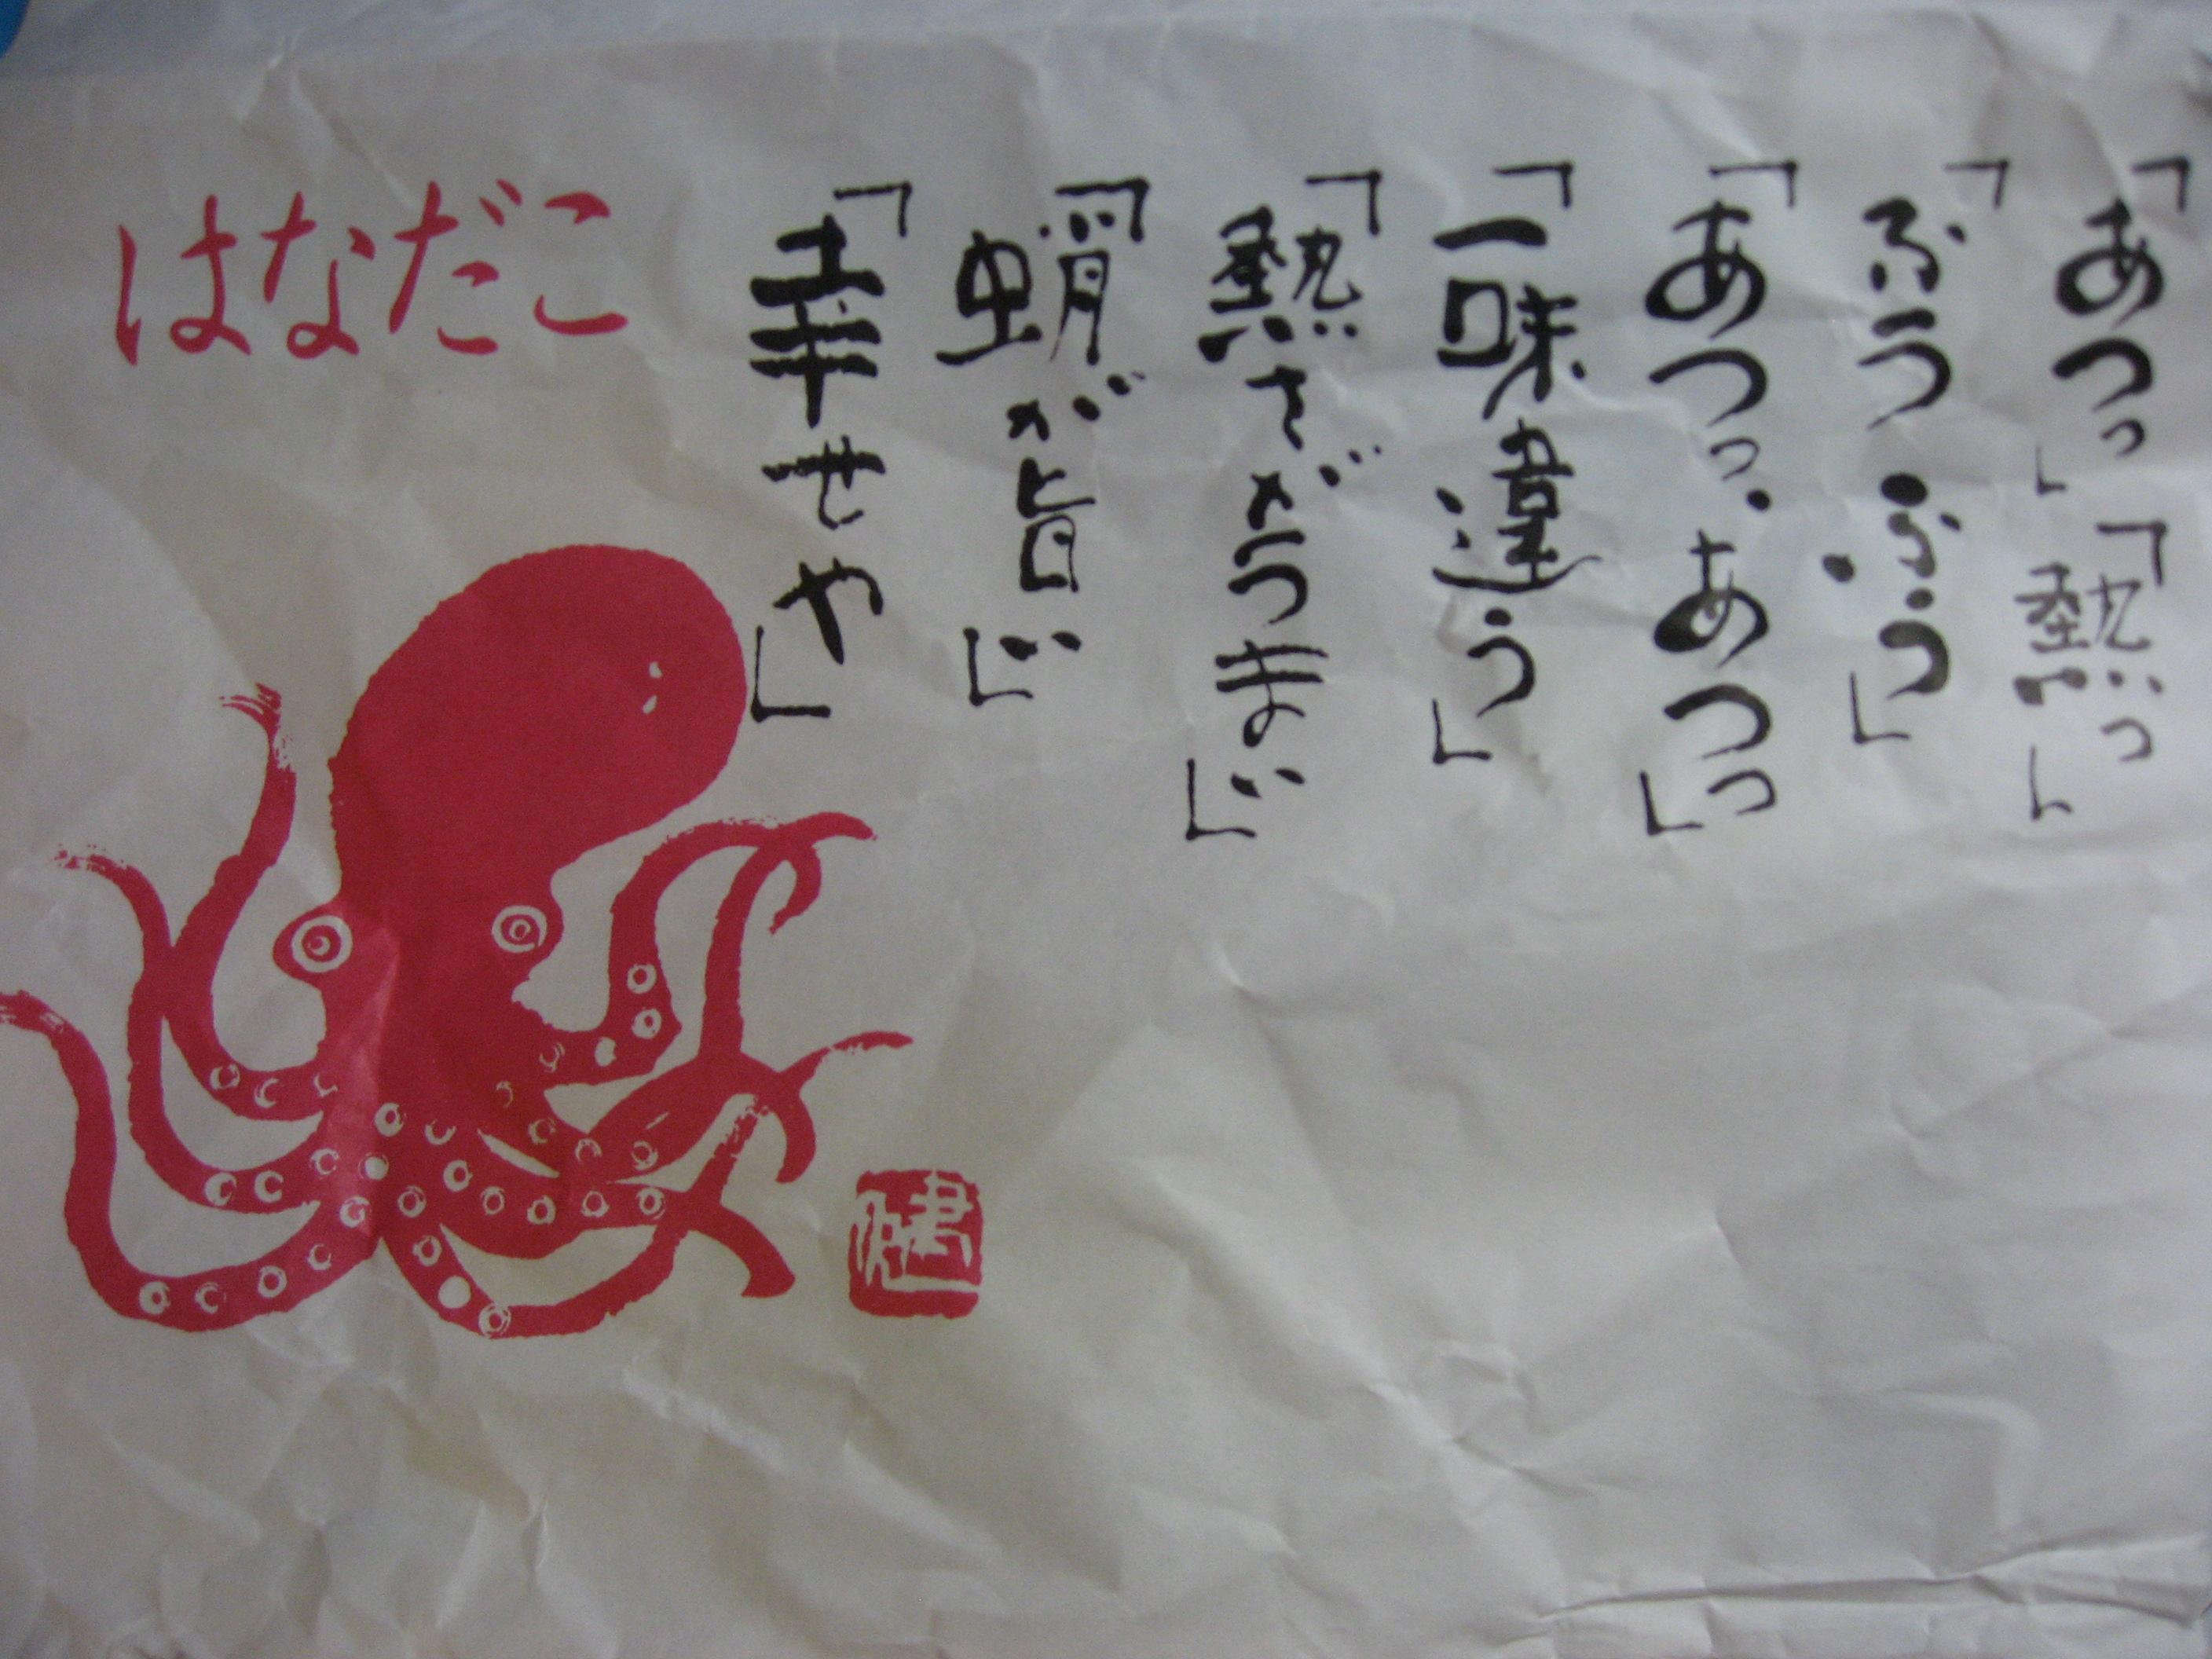 「あつっ」「熱っ」
「ふうふう」
「あつっ、あつっ」
「一味違う」
「熱さがうまい」
「蛸が旨い」
「幸せや」
はなだこ
健